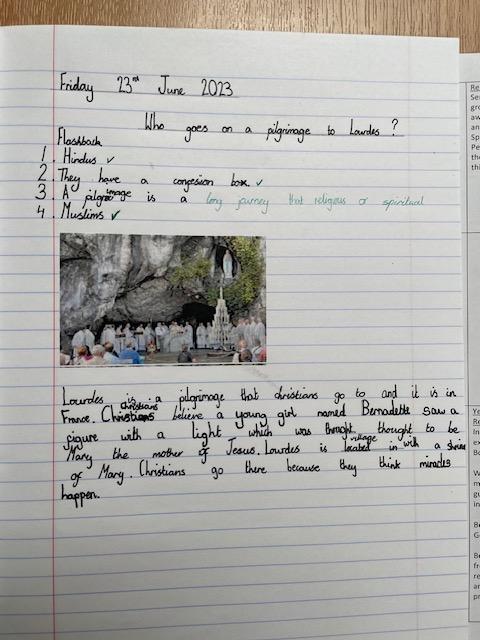 Friday 23rd June 2023
Who goes on a pilgrimage to Lourdes?
Flashback
1. Hindus ✓
2. They have a congesion box. ✓
3. A pilgrimage is a long jurney that religious or spiritual
4. Muslims ✓
Lourdes is a pilgrimage that christians go to and it is in
France. Christians believe a young girl named Bernadette saw a
figure with a light which was thought to be
Mary the mother of Jesus. Lourdes is located in village with a shrine
of Mary. Christians go there because they think miracles
happen.